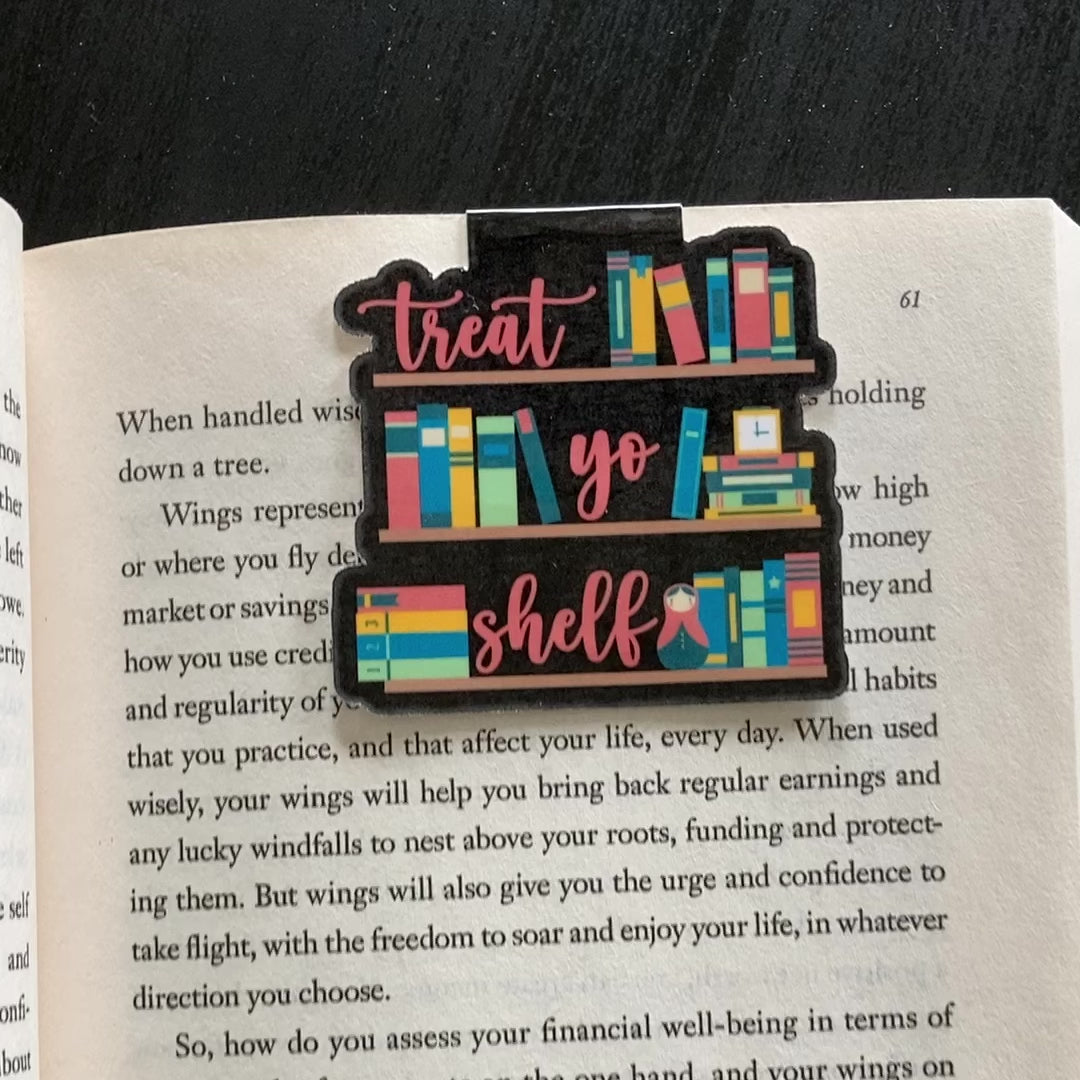 treat
yo
shelf
1 2 3
61
When handled holding
down a tree.
Wings represent ow high
or where you fly money
market or savings ney and
how you use amount
and regularity of l habits
that you practice, and that affect your life, every day. When used
wisely, your wings will help you bring back regular earnings and
any lucky windfalls to nest above your roots, funding and protect-
ing them. But wings will also give you the urge and confidence to
take flight, with the freedom to soar and enjoy your life, in whatever
direction you choose.
So, how do you assess your financial well-being in terms of
the one hand, and your wings on
the
now
ther
left
owe.
erity
self
and
onfi-
bout